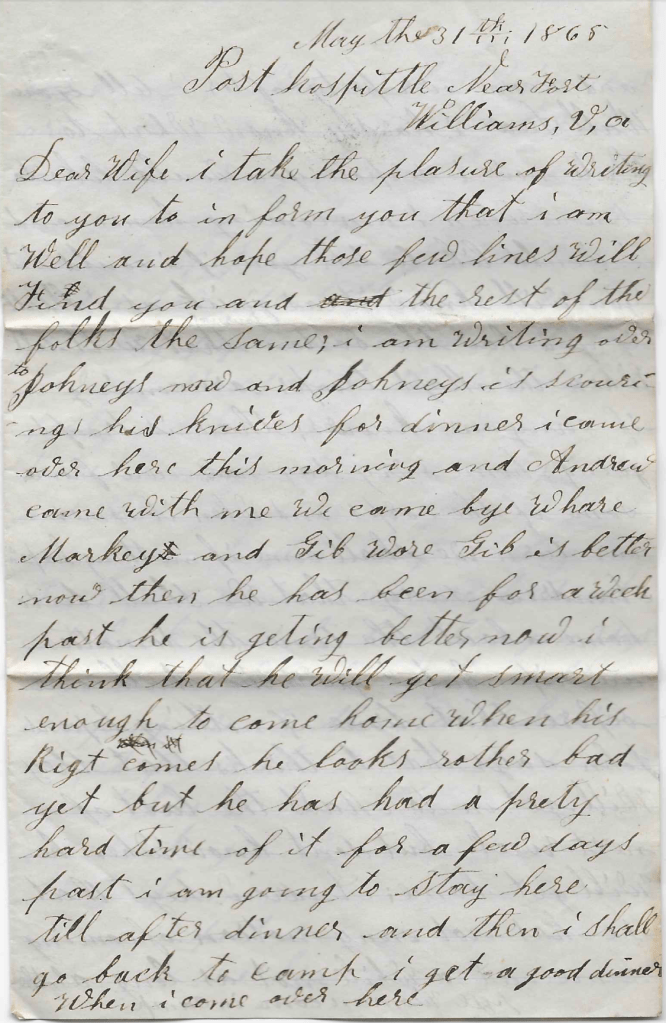 May the 31th 1865
Post hospittle Near Fort
Williams, V,a
Dear Wife i take the plasure of writing
to you to in form you that i am
Well and hope those few lines will
Find you and and the rest of the
folks the same; i am writing over
to Johneys now and Johneys is scouri-
ngs his knives for dinner i came
over here this morning and Andrew
came with me We came bye Whare
Markey and Gib wore Gib is better
now then he has been for a week
past he is geting better now i
think that he will get smart
enough to come home When his
Rigt comes he looks rother bad
yet but he has had a prety
hard time of it for a few days
past i am going to stay here
till after dinner and then i shall
go back to camp i get a good dinner
When i come over here